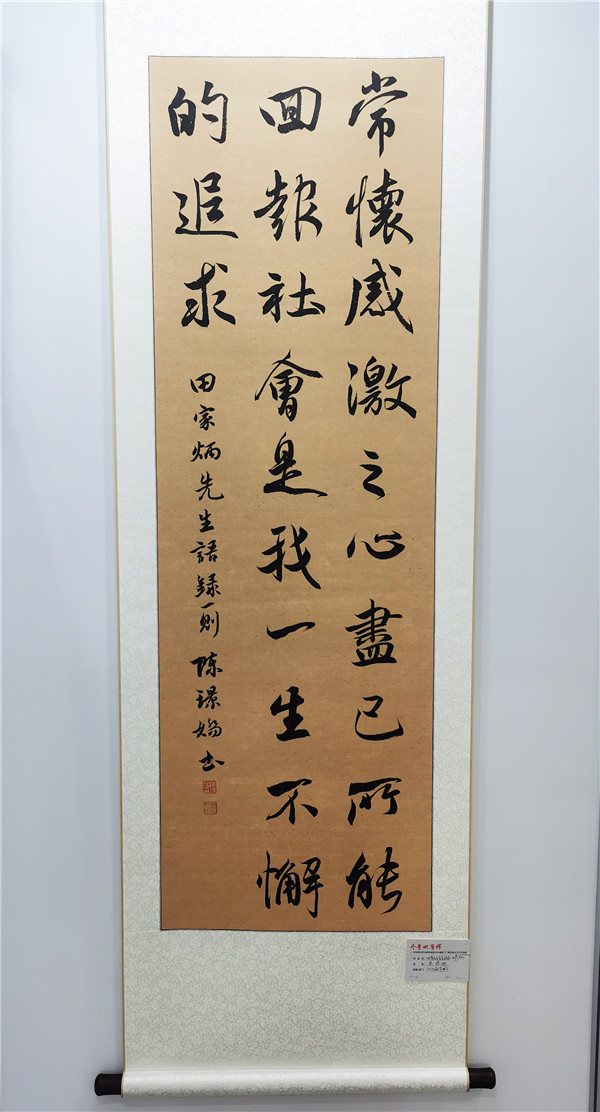 常懷感激之心盡己所能
回報社會是我一生不懈
的追求
田家炳先生語錄一則 陈璟娟书